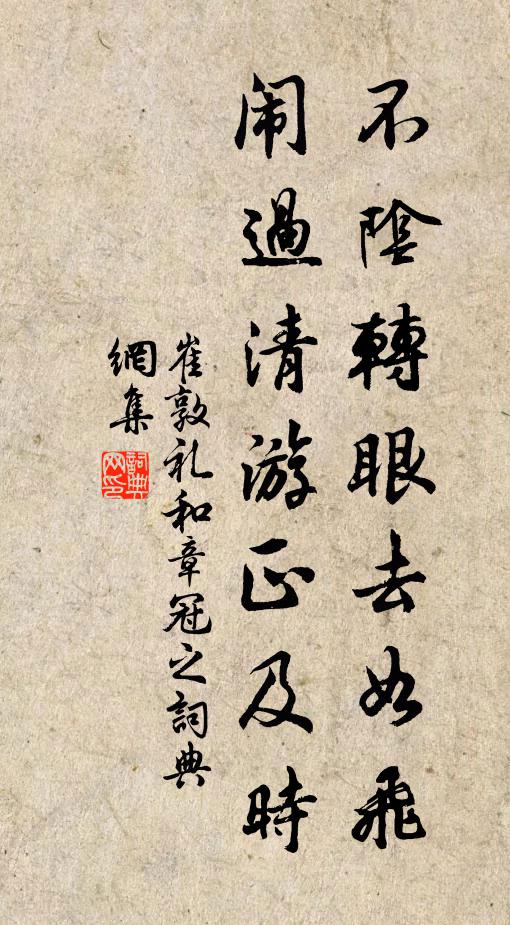 不陰轉眼去如飛
闹過清游正及時
崔敦礼和章冠之詞典
網集
詞典網印